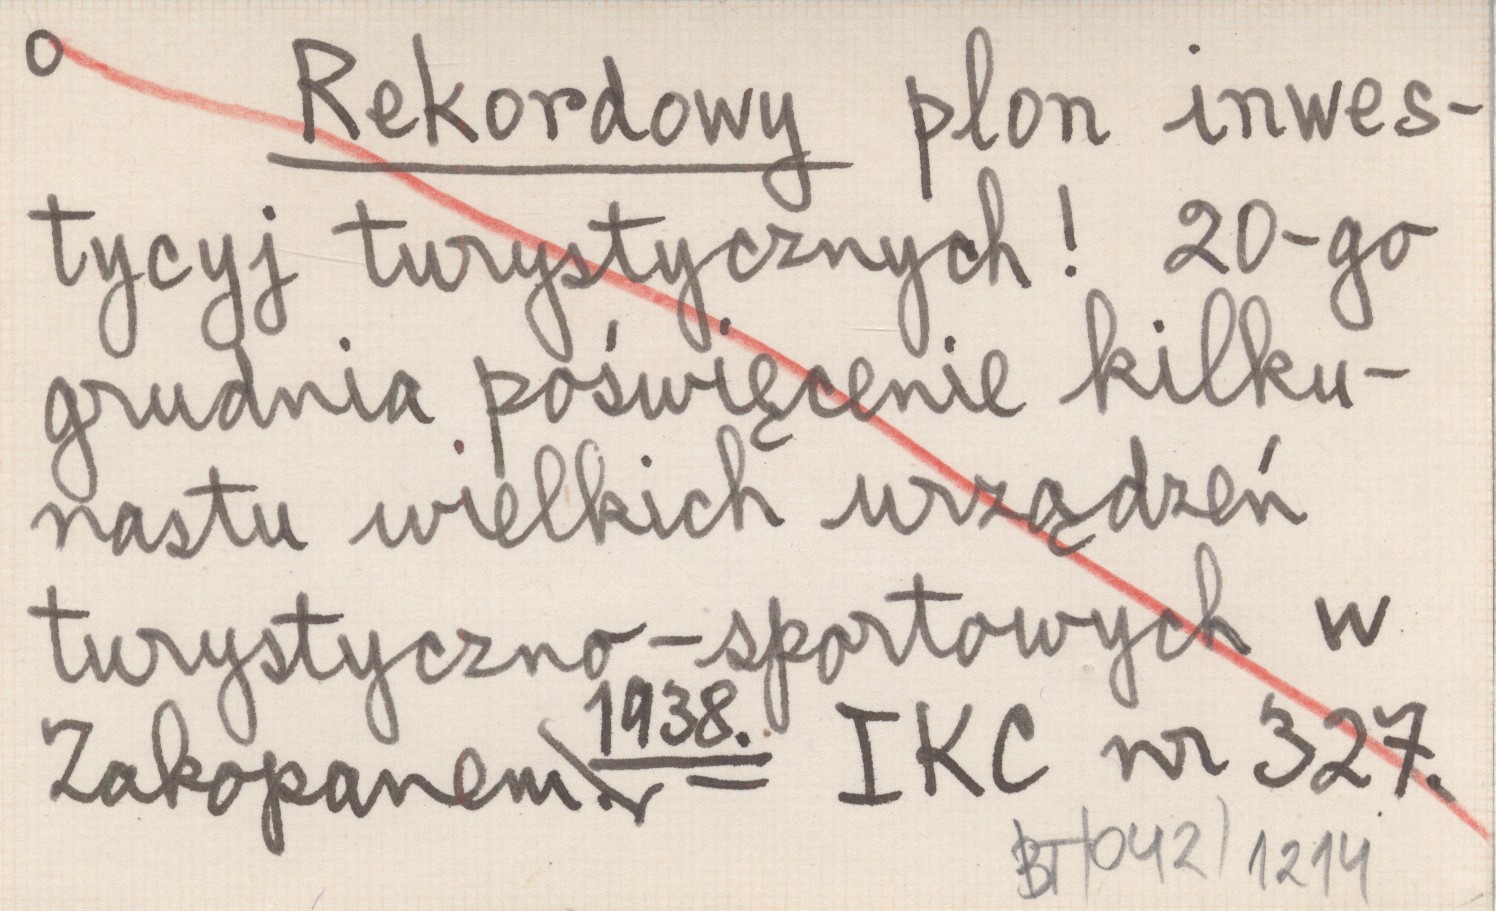 o Rekordowy plon inwes-
tycyj turystycznych! 20-go
grudnia poświęcenie kilku-
nastu wielkich urządzeń
turystyczno-sportowych w
Zakopanem. 1938. IKC nr 327.
BT (042) 1214